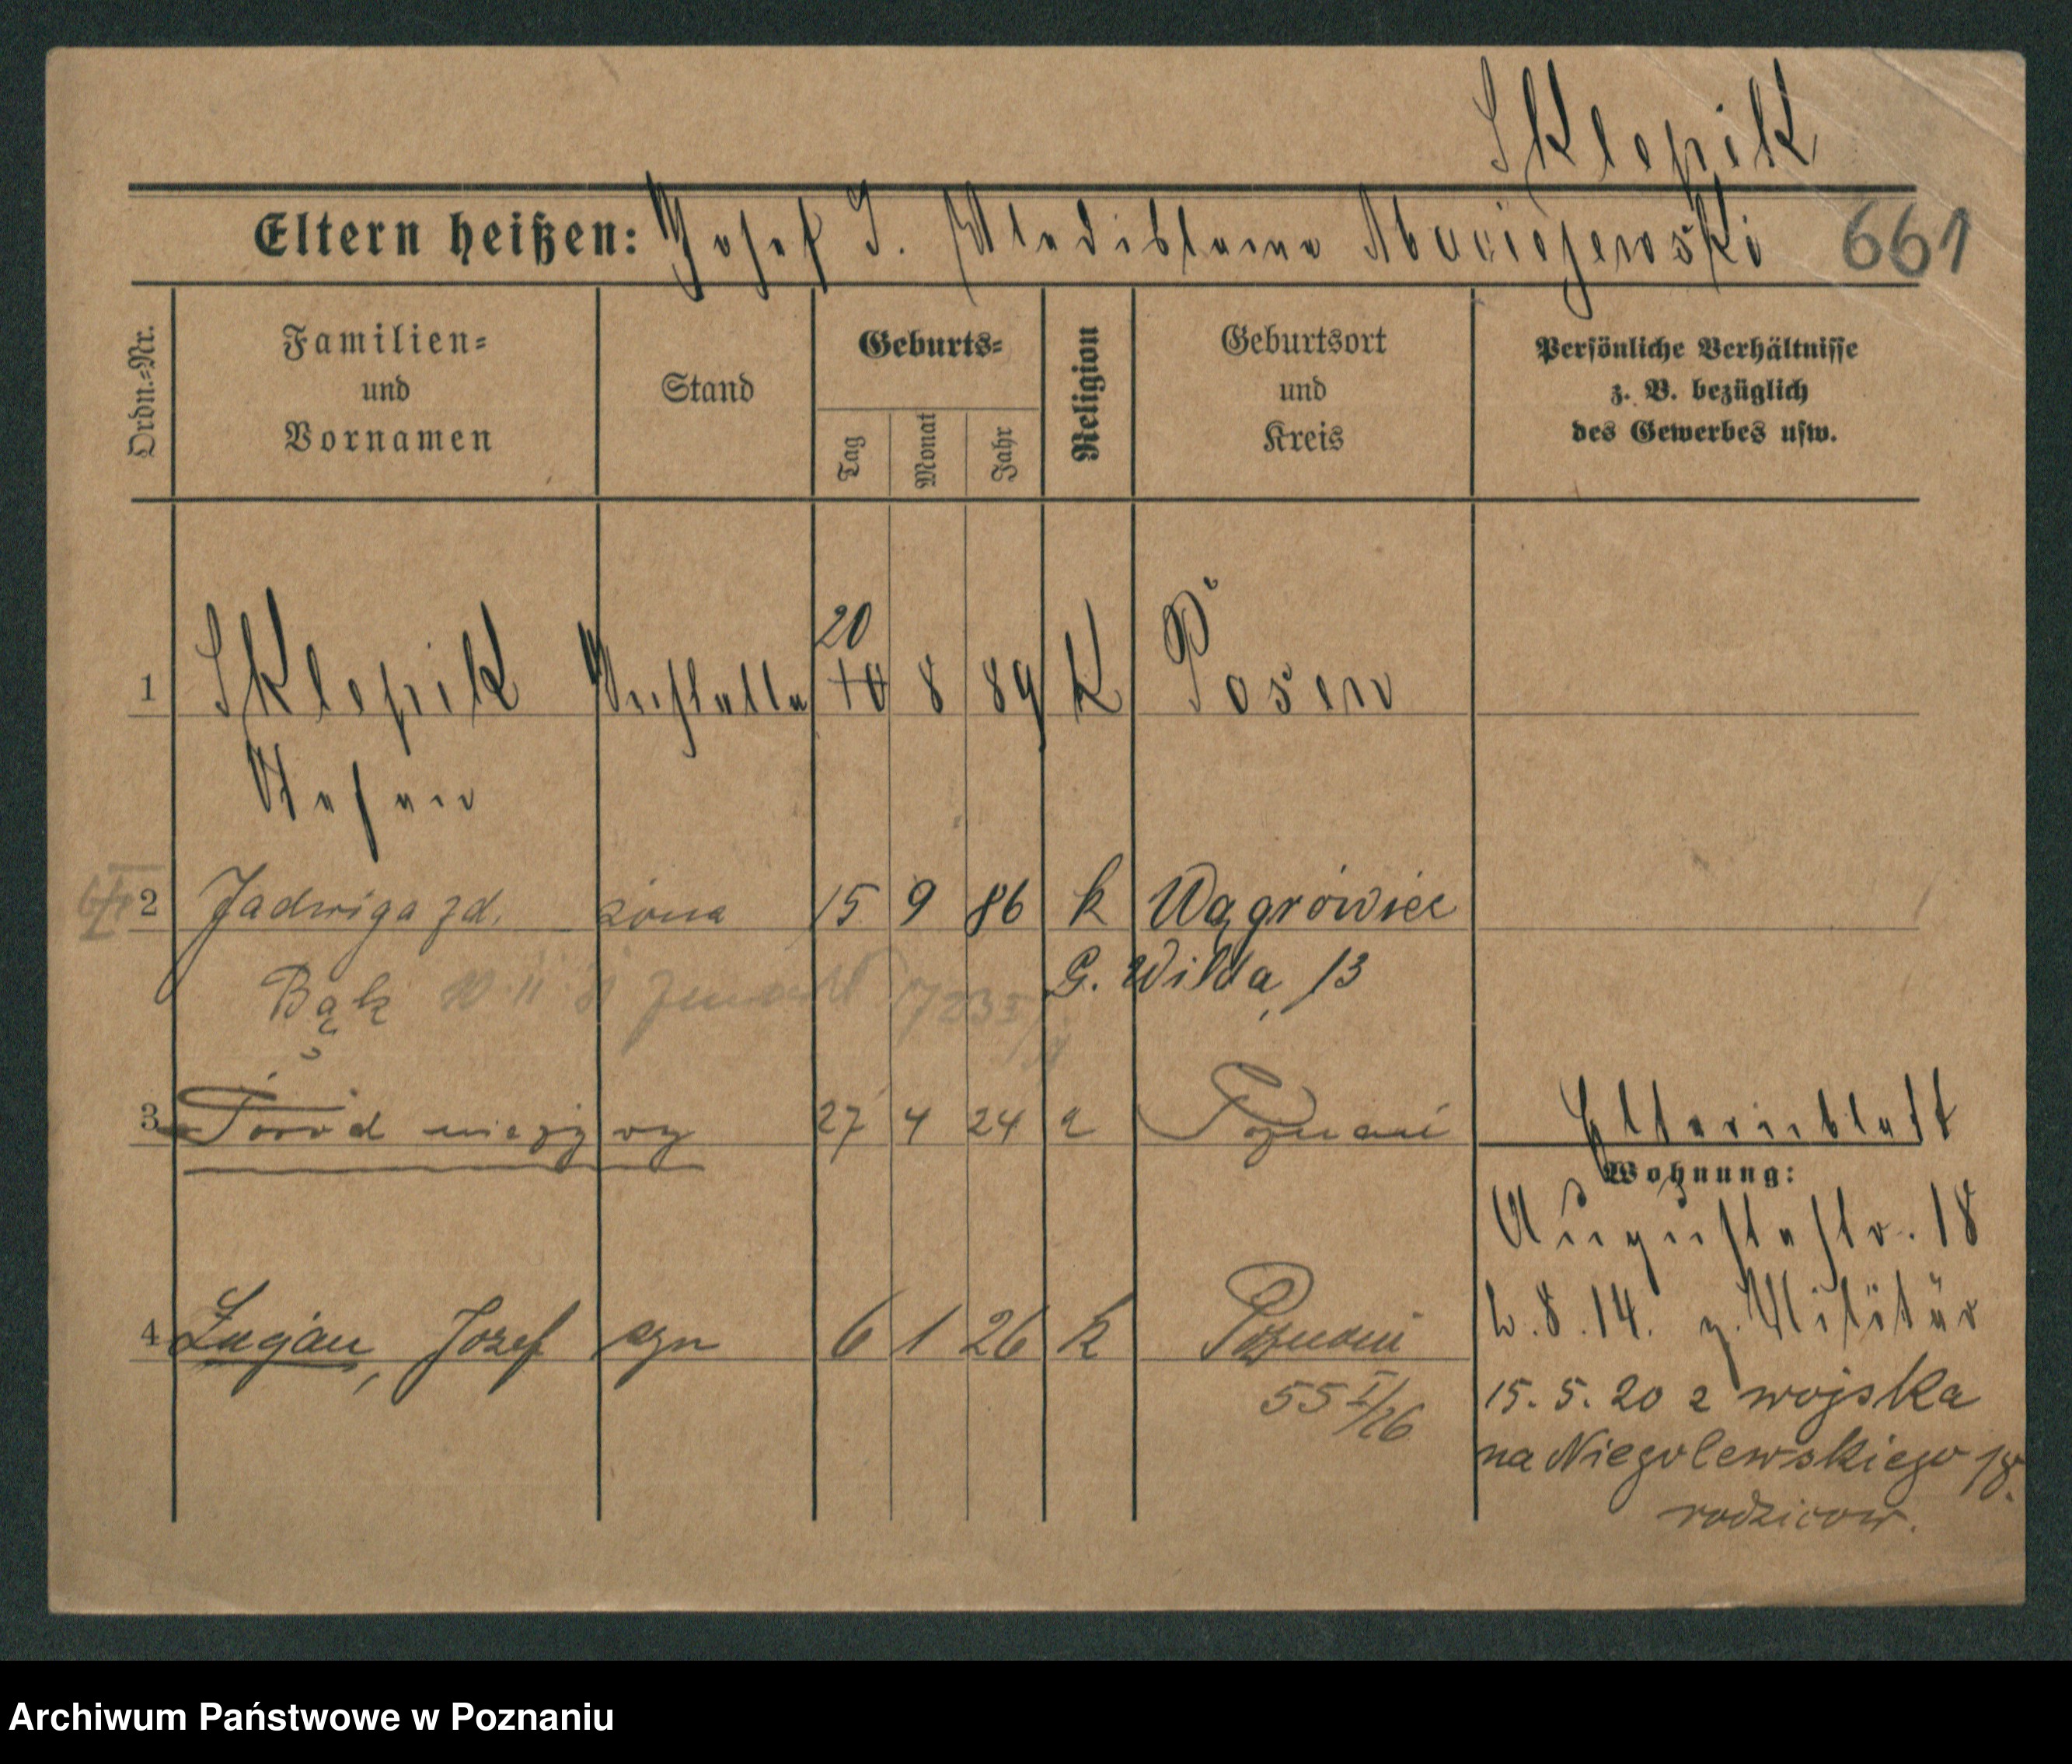 Sklepik
Eltern heißen: Josef S. Wladislawa Maciejewski 661
Ordn.-Nr. Familien- und Vornamen Stand Geburts- Tag Monat Jahr Religion Geburtsort und Kreis Persönliche Verhältnisse z. B. bezüglich des Gewerbes usw.
20
1 Sklepik 10 8 89 K Posen
Stefan
2 Jadwiga zd. żona 15 9 86 k Wągrówiec
Bąk G. Wilda 13
3 Poród nieżywy 27 4 24 Poznań
Elternblatt
Wohnung:
Augustastr. 18
4 Łucjan, Józef syn 6 1 26 k Poznań
.8.14. z. Militär
55 I/26
15.5.20 z wojska
na Niegolewskiego 18.
rodziców.
Archiwum Państwowe w Poznaniu